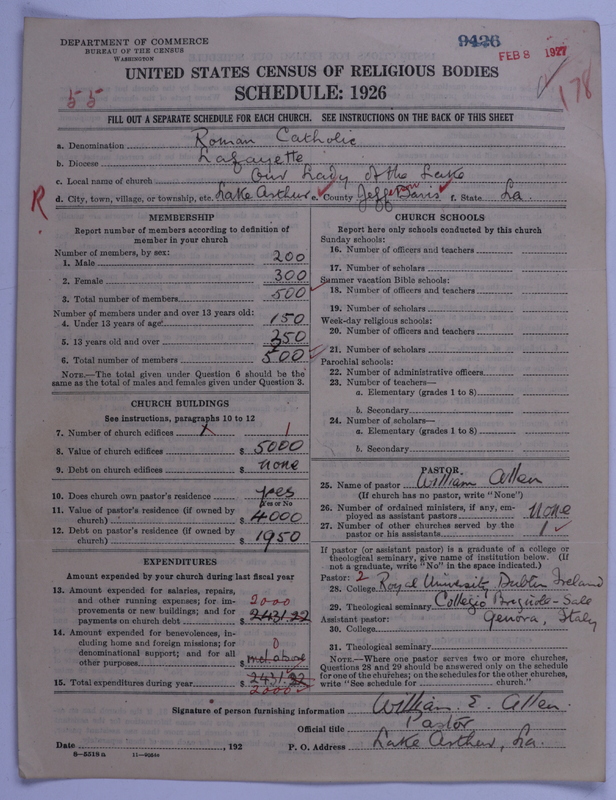 DEPARTMENT OF COMMERCE
BUREAU OF THE CENSUS
WASHINGTON
9426
FEB 8 1927
178
55
UNITED STATES CENSUS OF RELIGIOUS BODIES
SCHEDULE: 1926
FILL OUT A SEPARATE SCHEDULE FOR EACH CHURCH. SEE INSTRUCTIONS ON THE BACK OF THIS SHEET
a. Denomination Roman Catholic
b. Diocese Lafayette
c. Local name of church Our Lady of the Lake
R
d. City, town, village, or township, etc. Lake Arthur e. County Jeff Davis f. State La.
MEMBERSHIP
Report number of members according to definition of
member in your church
Number of members, by sex:
1. Male 200
2. Female 300
3. Total number of members 500
Number of members under and over 13 years old:
4. Under 13 years of age 150
5. 13 years old and over 350
6. Total number of members 500
NOTE.—The total given under Question 6 should be the
same as the total of males and females given under Question 3.
CHURCH BUILDINGS
See instructions, paragraphs 10 to 12
7. Number of church edifices x 1
8. Value of church edifices $ 5000
9. Debt on church edifices $ none
10. Does church own pastor's residence yes
Yes or No
11. Value of pastor's residence (if owned by
church) $ 4000
12. Debt on pastor's residence (if owned by
church) $ 1950
EXPENDITURES
Amount expended by your church during last fiscal year
13. Amount expended for salaries, repairs,
and other running expenses; for im-
provements or new buildings; and for
payments on church debt $ 2431.22
2000
14. Amount expended for benevolences, in-
cluding home and foreign missions; for
denominational support; and for all
other purposes $ incl. above
0
15. Total expenditures during year $ 2431.22
2000
CHURCH SCHOOLS
Report here only schools conducted by this church
Sunday schools:
16. Number of officers and teachers
17. Number of scholars
Summer vacation Bible schools:
18. Number of officers and teachers
19. Number of scholars
Week-day religious schools:
20. Number of officers and teachers
21. Number of scholars
Parochial schools:
22. Number of administrative officers
23. Number of teachers—
a. Elementary (grades 1 to 8)
b. Secondary
24. Number of scholars—
a. Elementary (grades 1 to 8)
b. Secondary
PASTOR
25. Name of pastor William Allen
(If church has no pastor, write "None")
26. Number of ordained ministers, if any, em-
ployed as assistant pastors none
27. Number of other churches served by the
pastor or his assistants 1
If pastor (or assistant pastor) is a graduate of a college or
theological seminary, give name of institution below. (If
not a graduate, write "No" in the space indicated.)
Pastor: 2
28. College Royal University Dublin Ireland
29. Theological seminary Collegio Brignole-Sale
Assistant pastor: Genova, Italy
30. College
31. Theological seminary
NOTE.—Where one pastor serves two or more churches,
Questions 28 and 29 should be answered only on the schedule
for one of the churches; on the schedules for the other churches,
write "See schedule for church."
Signature of person furnishing information William. E. Allen.
Official title Pastor
Date , 192 P. O. Address Lake Arthur, La.
8—5318a 11—90546